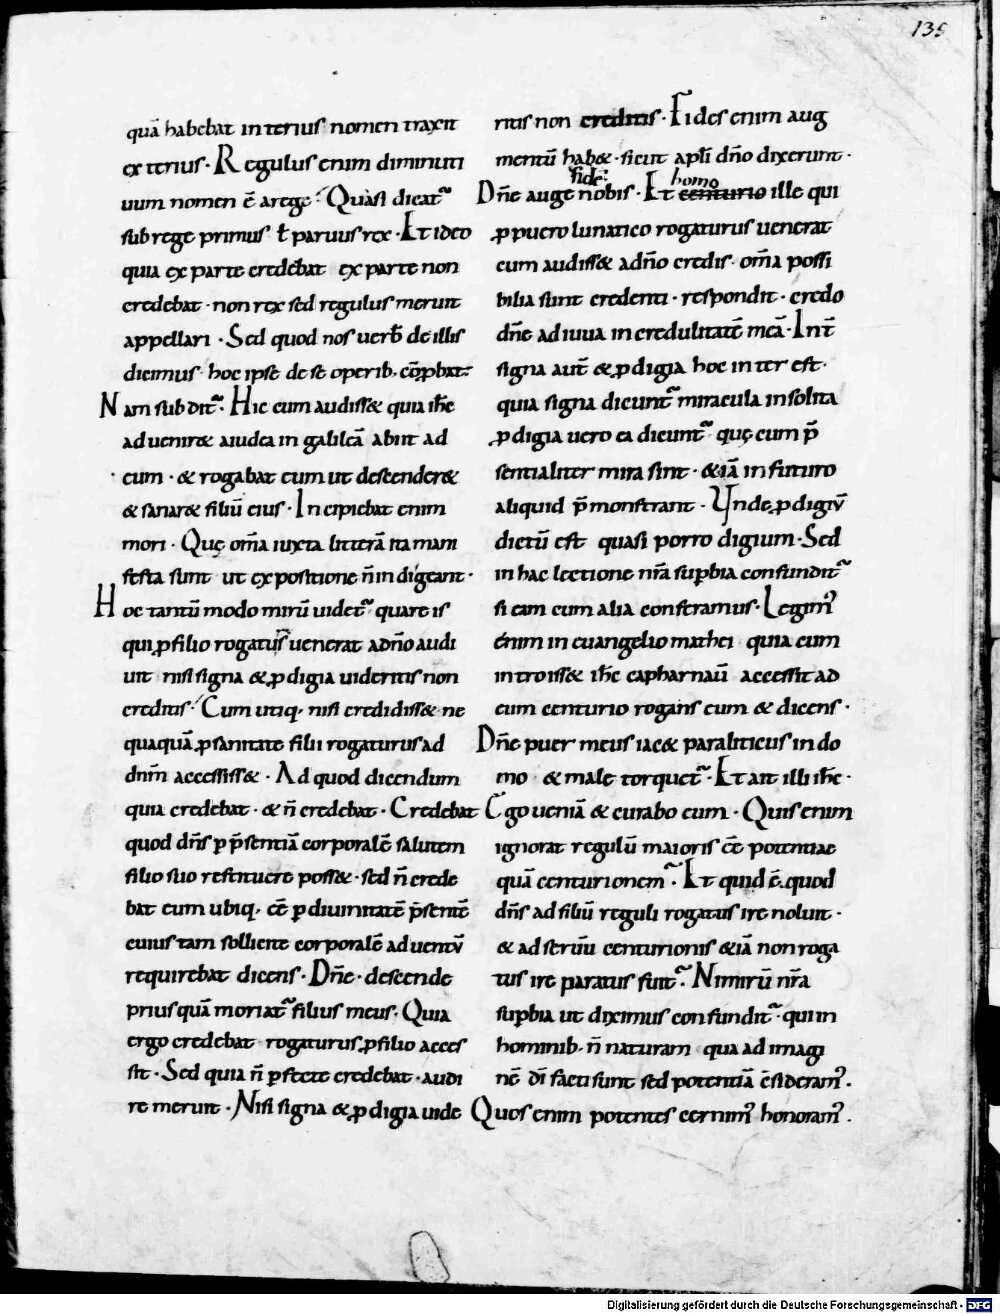 135
quā habebat interius nomen traxit
exterius· Regulus enim diminuti
uum nomen ē a rege· Quasi dicat᷑
sub rege primus ł paruus rex· Et ideo
quia ex parte credebat ex parte non
credebat· non rex sed regulus meruit
appellari· Sed quod nos uerb̄ de illis
dicimus· hoc ipse de se operib· cōꝓbat·
Nam subdit᷑· Hic cum audiss& quia ihc̄
aduenir& a iudea in galileā abiit ad
eum· & rogabat eum ut descender&
& sanar& filiū eius· Incipiebat enim
mori· Quę om̄a iuxta litterā ita mani
festa sunt ut expositione ñ indigeant·
Hoc tantū modo mirū uidet᷑ quare is
qui ꝓ filio rogaturus uenerat ad dño audi
uit nisi signa & ꝓdigia uideritis non
creditis· Cum utiq· nisi credidiss& ne
quaquā ꝓ sanitate filii rogaturus ad
dnm̄ accessiss&· Ad quod dicendum
quia credebat· & ñ credebat· Credebat
quod dñs ꝑ p̄sentiā corporalē salutem
filio suo restituere poss&· sed ñ crede
bat eum ubiq· cē ꝑ diuinitatē p̄sentē
cuius tam sollicite corporalē aduentū
requirebat dicens· Dñe· descende
priusquā moriat᷑ filius meus· Quia
ergo credebat rogaturus ꝓ filio acces
sit· Sed quia ñ ꝑfecte credebat· audi
re meruit· Nisi signa & ꝓdigia uide
ritis non creditis· Fides enim aug
mentū hab&· sicut apłi dño dixerunt·
fidē
homo
Dñe auge nobis· Et centurio ille qui
ꝓ puero lunatico rogaturus uenerat
cum audiss& a dño credis· om̄a possi
bilia sunt credenti· respondit· credo
dñe adiuua incredulitatē meā· Int̄
signa aut̄ & ꝓdigia hoc interest·
quia signa dicunt᷑ miracula insolita
ꝓdigia uero ea dicunt᷑ quę cum p̄
sentialiter mira sint· &iā in futuro
aliquid p̄monstrant· Vnde ꝓdigiū
dictū est quasi porro digium· Sed
in hac lectione nr̄a suꝑbia confundit᷑
si eam cum alia conferamus· Legim᷒
enim in euangelio mathei quia cum
introiss& ihc̄ capharnaū accessit ad
eum centurio rogans eum & dicens·
Dñe puer meus iac& paraliticus in do
mo & male torquet᷑· Et ait illi ihc̄·
Ego ueniā & curabo eum· Quis enim
ignorat regulū maioris cē potentiae
quā centurionem· Et quid ē· quod
dñs ad filiū reguli rogatus ire noluit·
& ad seruū centurionis &iā non roga
tus ire paratus fuit· Nimirū nr̄a
suꝑbia ut diximus confundit᷑· qui in
hominib· ñ naturam qua ad imagi
nē dī facti sunt sed potentiā cōsideram᷒·
Quos enim potentes cernim᷒ honoram᷒·
Digitalisierung gefördert durch die Deutsche Forschungsgemeinschaft - DFG